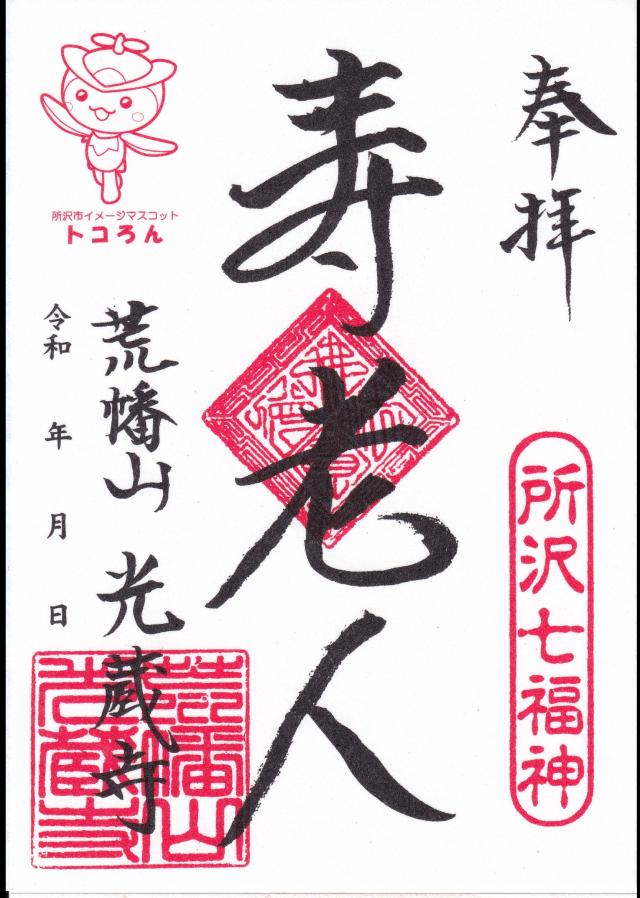 奉拝
所沢七福神
寿老人
荒幡山 光蔵寺
令和 年 月 日
所沢市イメージマスコット
トコろん
荒幡山
光蔵寺